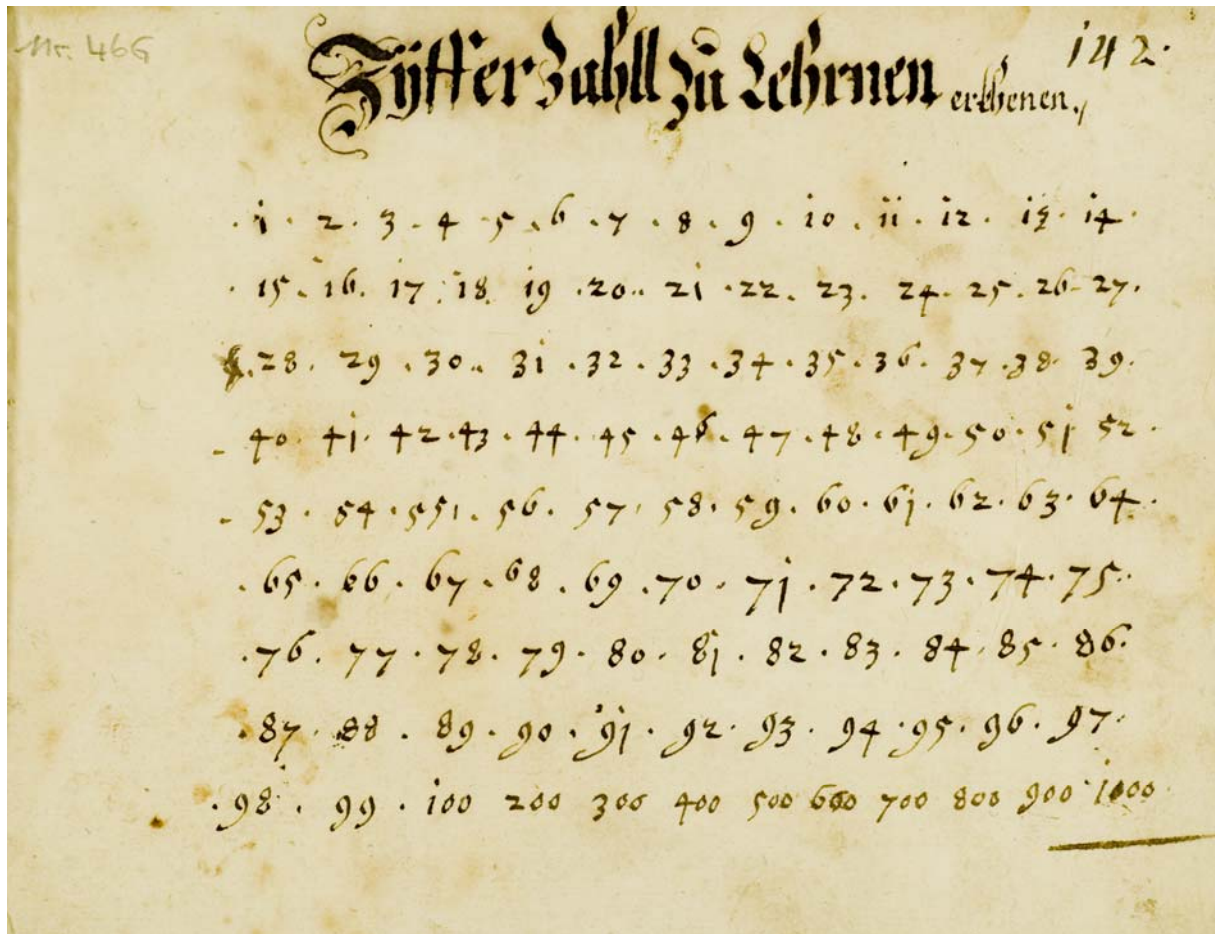 Nr. 466
142.
Zÿffer Zahll zu Lehrnen erkhenen.
. i . 2 . 3 . 4 . 5 . 6 . 7 . 8 . 9 . io . ii . i2 . i3 . i4 .
. 15 . 16 . i7 . i8 . i9 . 20 . . 2i . 22 . 23 . 24 . 25 . 26 . 27 .
. 28 . 29 . 30 . . 3i . 32 . 33 . 34 . 35 . 36 . 37 . 38 . 39 .
- 40 . 4j . 42 . 43 . 44 . 45 . 46 . 47 . 48 . 49 . 50 . 5j 52 .
- 53 . 54 . 55 . 56 . 57 . 58 . 59 . 60 . 6j . 62 . 63 . 64 .
. 65 . 66 . 67 . 68 . 69 . 70 . 7j . 72 . 73 . 74 . 75 . .
. 76 . 77 . 78 . 79 . 80 . 8j . 82 . 83 . 84 . 85 . 86 .
. 87 . 88 . 89 . 90 . 9j . 92 . 93 . 94 . 95 . 96 . 97 .
. 98 . 99 . i00 200 300 400 500 600 700 800 900 i000